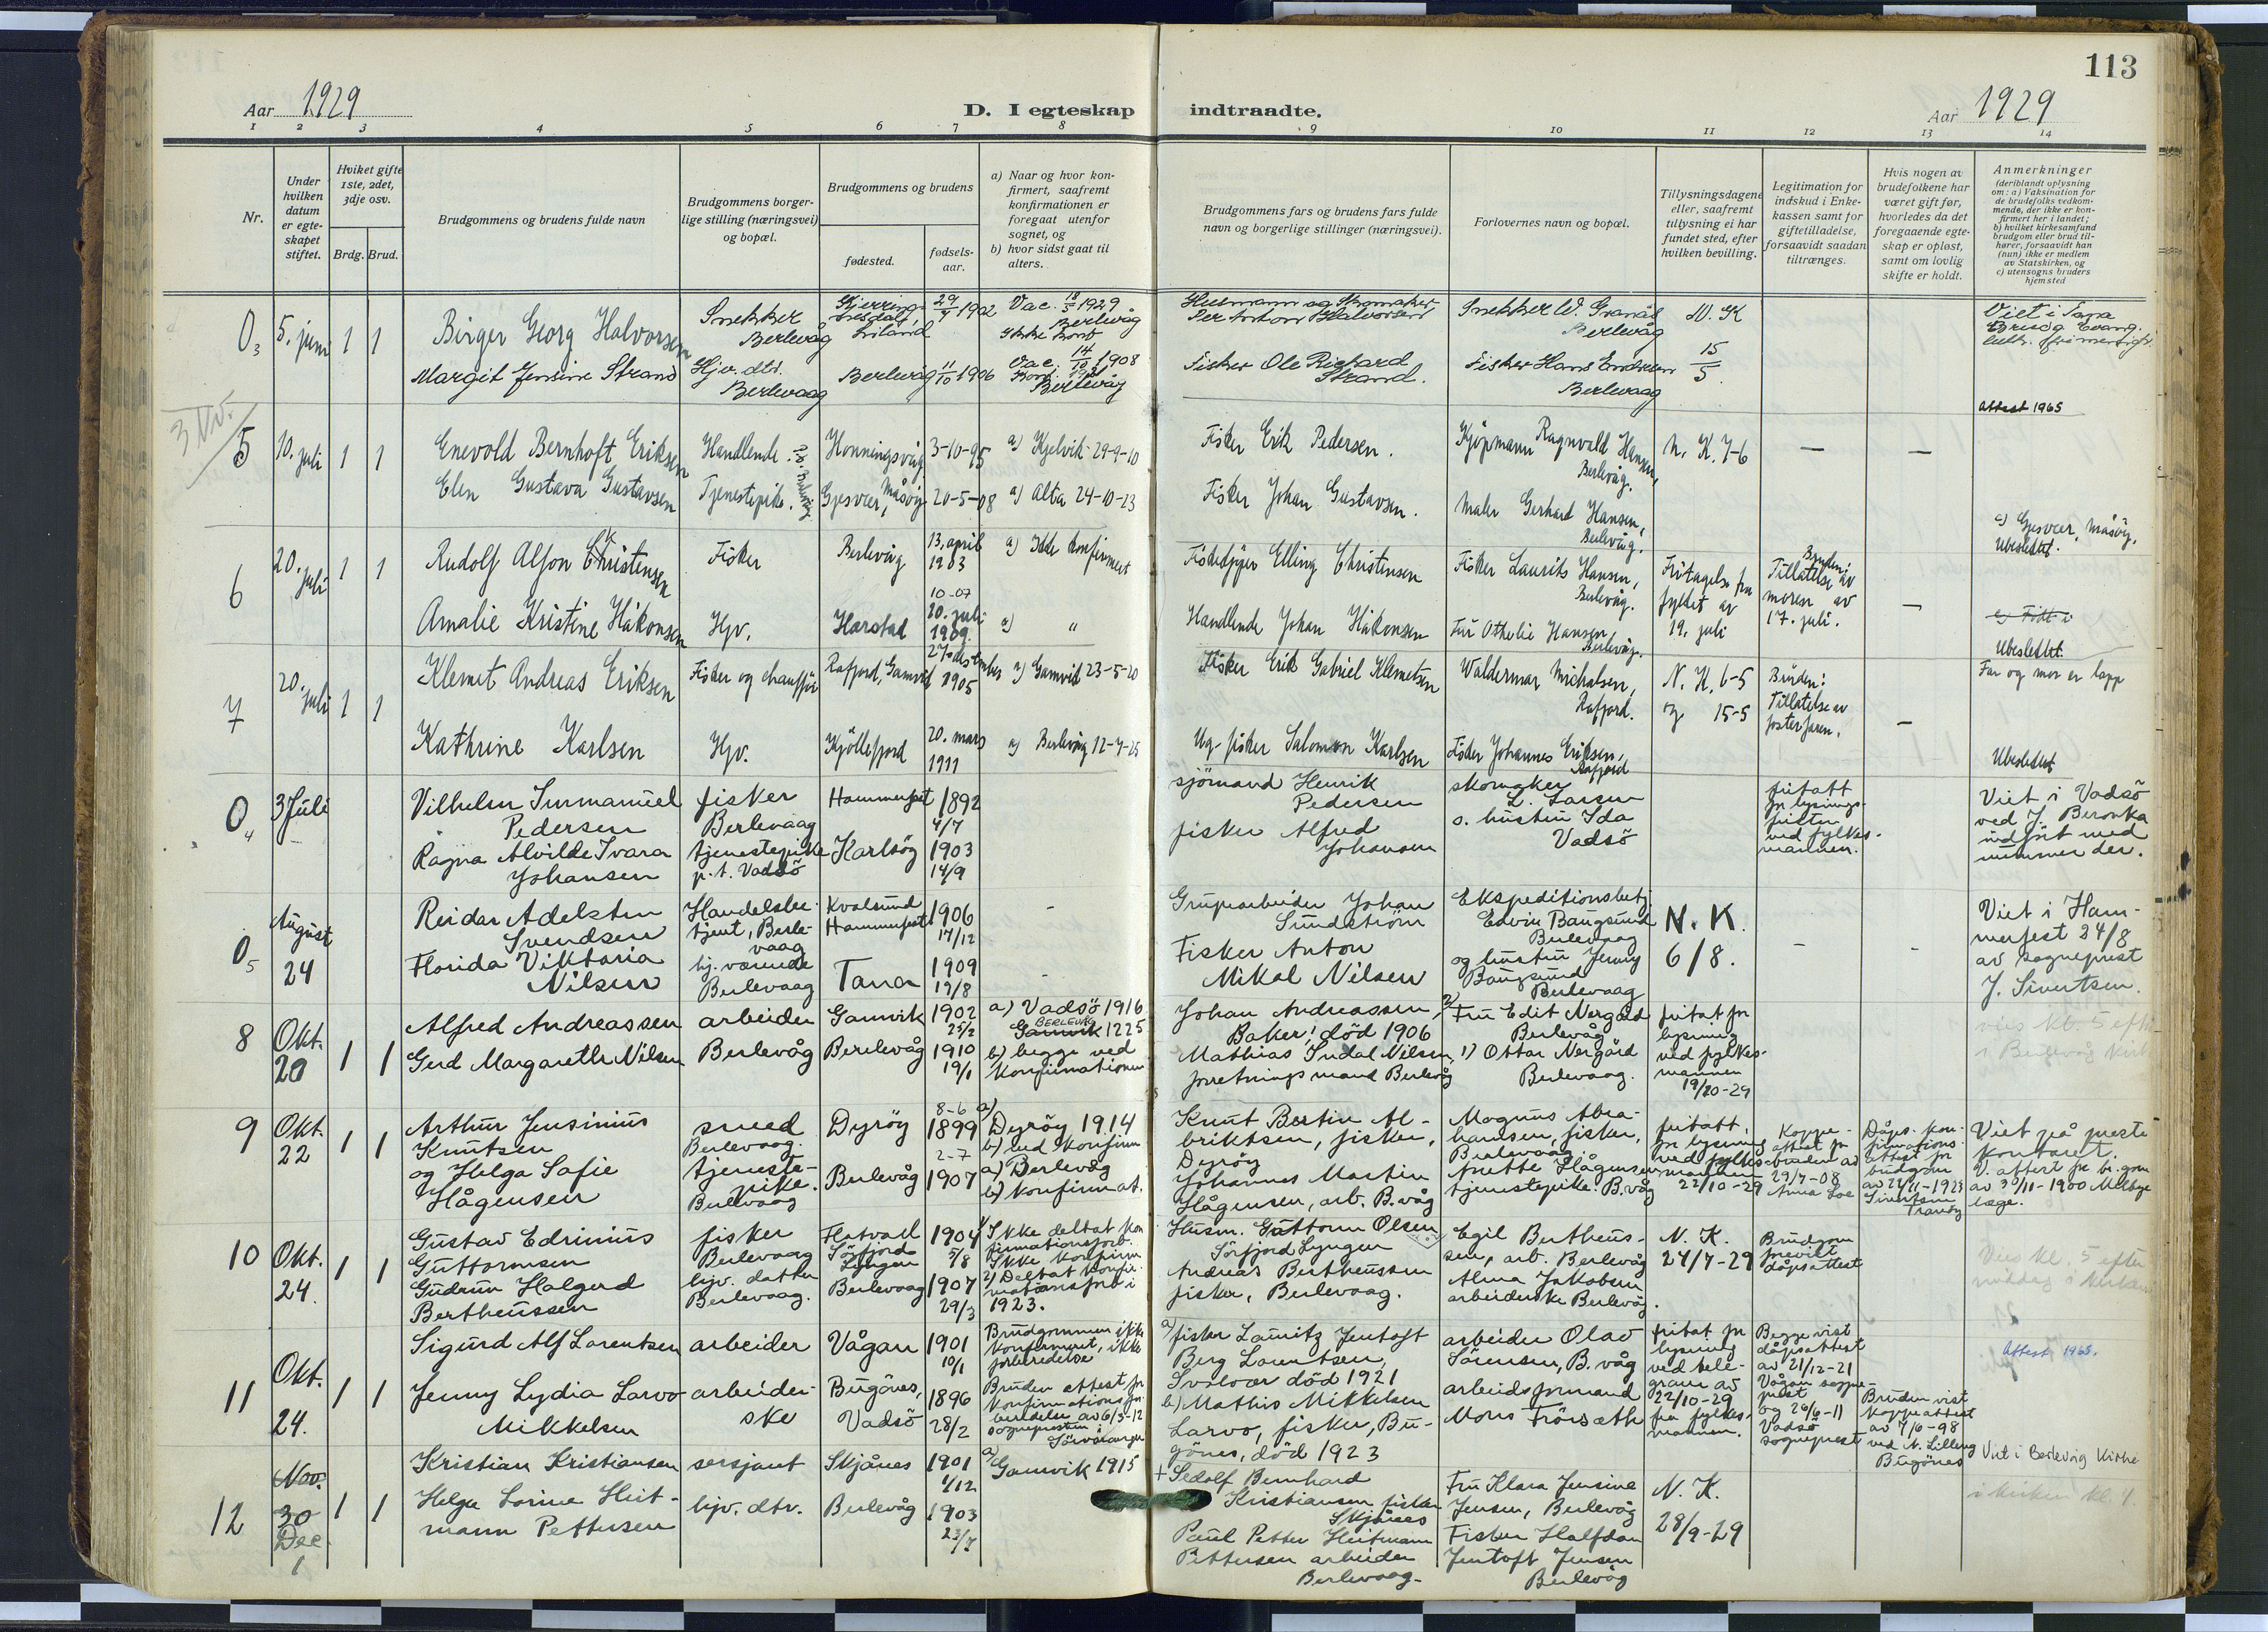 113
Aar 1929
D. I egteskap indtraadte.
Aar 1929
1 2 3 4 5 6 7 8 9 10 11 12 13 14
Nr.
Under hvilken datum er egteskapet stiftet.
Hviket gifte 1ste, 2det, 3dje osv.
Brdg. Brud.
Brudgommens og brudens fulde navn
Brudgommens borgerlige stilling (næringsvei) og bopæl.
Brudgommens og brudens
fødested.
fødselsaar.
a) Naar og hvor konfirmert, saafremt konfirmationen er foregaat utenfor sognet, og
b) hvor sidst gaat til alters.
Brudgommens fars og brudens fars fulde navn og borgerlige stillinger (næringsvei).
Forlovernes navn og bopæl.
Tillysningsdagene eller, saafremt tillysning ei har fundet sted, efter hvilken bevilling.
Legitimation for indskud i Enkekassen samt for giftetilladelse, forsaavidt saadan tiltrænges.
Hvis nogen av brudefolkene har været gift før, hvorledes da det foregaaende egteskap er opløst, samt om lovlig skifte er holdt.
Anmerkninger
(deriblandt oplysning om: a) Vaksination for de brudefolks vedkommende, der ikke er konfirmert her i landet;
b) hvilket kirkesamfund brudgom eller brud tilhører, forsaavidt han (hun) ikke er medlem av Statskirken, og
c) utensogns bruders hjemsted
0 3 5. juni 1 1 Birger Georg Halvorsen Snekker Berlevåg 29/4 1902 Vac. 18/5 1929 Berlevåg Ikke konf
Husmann og Skomaker Per Anton Halvorsen Snekker W. Granås Berlevåg N. K 15/5 Viet i Tana
Margit Jensine Strand Hjv. dtr. Berlevaag Berlevåg 11/10 1906 Vac. 14/10 1908 Konf. Berlevåg
Fisker Ole Rickard Strand. Fisker Hans Endresen Berlevaag
Attest 1965
5 10. juli 1 1 Enevold Bernhoft Eriksen Handlende. Honningsvåg 3-10-95 a) Kjelvik 29-9-10
Fisker Erik Pedersen. Kjøpmann Ragnvald Hansen, Berlevåg. N. K. 7-6 — —
Elen Gustava Gustavsen Tjenestepike. Gjesvær, Måsøy 20-5-08 a) Alta 24-10-23
Fisker Johan Gustavsen. Maler Gerhard Hansen, Berlevåg. c) Gjesvær, Måsøy. Ubeslektet.
6 20. juli 1 1 Rudolf Alfon Christensen Fisker Berlevåg 13. april 1903 a) Ikke konfirmert
Fiskekjøper Elling Christensen Fisker Laurits Hansen, Berlevåg. Fritagelse fra fylket av 19. juli Bruden: Tillatelse av moren av 17. juli. —
Amalie Kristine Håkonsen Hjv. Harstad 10-07 20. juli 1909. a) "
Handlende Johan Håkonsen Fru Othelie Hansen, Berlevåg. c) Født i Ubeslektet.
7 20. juli 1 1 Klemet Andreas Eriksen Fisker og chauffør Rafjord, Gamvik 27 1905 a) Gamvik 23-5-20
Fisker Erik Gabriel Klemetsen Waldermar Michalsen, Rafjord. N. K. 6-5 og 15-5 Bruden: Tillatelse av fosterfaren. — Far og mor er lapp
Kathrine Karlsen Hjv. Kjøllefjord 20. mars 1911 a) Berlevåg 12-7-25
Ug. fisker Salomon Karlsen Fisker Johannes Eriksen, Rafjord Ubeslektet
0 4 3 Juli Vilhelm Immanuel Pedersen fisker Berlevaag Hammerfest 1892 4/7
sjömand Henrik Pedersen skomaker L. Larsen o. hustru Ida Vadsö fritatt for lysningsfristen ved fylkesmannen. Viet i Vadsö ved J. Beronka indfört med nummer der.
Ragna Alvilde Ivara Johansen tjenestepike p.t. Vadsö Karlsöy 1903 14/9
fisker Alfred Johansen
0 5 August 24 Reidar Adelsten Svendsen Handelsbetjent, Berlevaag Kvalsund Hammerfest 1906 17/12 -
Grubearbeider Johan Sundström Ekspeditionsbetj. Edvin Baugsund Berlevaag N. K. 6/8. - - Viet i Hammerfest 24/8 av sogneprest J. Sivertsen.
Florida Viktoria Nilsen hj. værende Berlevaag Tana 1909 19/8 -
Fisker Anton Mikal Nilsen og hustru Jenny Baugsund Berlevaag
8 Okt. 20 1 1 Alfred Andreassen arbeider Gamvik 1902 25/2 a) Vadsö 1916
Johan Andreassen, Baker, död 1906 2) Fru Edit Nergård Berlevåg fritat for lysning ved fylkesmannen 19/10-29
Gerd Margarethe Nilsen Berlevåg Berlevåg 1910 19/1 Gamvik BERLEVÅG 1225 b) begge ved konfirmationen
Mathias Sudal Nilsen, forretningsmand Berlevåg 1) Ottar Nergård Berlevaag.
9 Okt. 22 1 1 Arthur Jensinius Knutsen smed Berlevaag. Dyröy 8-6 1899 a) Dyröy 1914 b) ved konfirm
Knut Bertin Albriktsen, fisker, Dyröy Magnus Abrahamsen, fisker, Berlevaag fritatt for lysning ved fylkesmannen 22/10-29 Koppeattest for bruden av 29/7-08 Anna Loe Dåps- konfirmationsattest for brudgom av 22/11-1923 Sivertsen Tranöy Viet på prestekontoret. V. attest for br. gom av 30/11-1900 læge.
og Helga Sofie Hågensen tjenestepike. Berlevaag Berlevåg 2-7 1907 a) Berlevåg b) konfirmat.
Johannes Martin Hågensen, arb. B.våg Anette Hågensen tjenestepike. B.våg
10 Okt. 24. 1 1 Gustav Edrinius Guttormsen fisker Berlevaag Flatvoll Sörfjord Lyngen 1904 5/8 1) Ikke deltat konfirmationsforb. Ikke konfirm
Husm. Guttorm Olsen Sörfjord Lyngen Egil Bertheussen, arb. Berlevåg N. K. 27/7-29 Brudgom forevist dåpsattest Vies kl. 5 efter middag i kirken
Gudrun Halgerd Bertheussen hjv. datter Berlevaag. Berlevaag 1907 29/3 2) Deltat konfirmationsforb i 1923.
Andreas Bertheussen fisker, Berlevaag. Alma Jakobsen arbeiderske Berlevåg.
11 Okt. 24. 1 1 Sigurd Alf Lorentsen arbeider Vågan 1901 10/1 Brudgommen ikke konfirmert, ikke forberedelse
a) fisker Lauritz Jentoft Berg Lorentsen, Svolvær död 1921 arbeider Olav Sörensen, B.våg fritat for lysning ved telegram av 22/10-29 fra fylkesmannen. Begge vist dåpsattest av 21/12-21 Vågan sogneprest og 26/6-11 Vadsö sogneprest Attest 1965.
Jenny Lydia Larvo Mikkelsen arbeiderske Bugönes, Vadsö 1896 28/2 Bruden attest for konfirmationsforberedelse av 6/3-12 sognepresten Sörvaranger
b) Mathis Mikkelsen Larvo, fisker, Bugönes, död 1923 arbeidsformand Mons Frörsæth Bruden vist koppeattest av 7/6-98 ved N. Lilleng Bugönes Viet i Berlevåg Kirke
12 Nov. 30 Dec. 1 1 1 Kristian Kristiansen sersjant Skjånes 1901 1/12 a) Gamvik 1915
+ Sedolf Bernhard Kristiansen fisker Skjånes Fru Klara Jensine Jensen, Berlevåg N. K. 28/9-29 i kirken kl. 4.
Helga Lorine Heitmann Pettersen hjv. dtr. Berlevåg 1903 23/7
Paul Petter Heitmann Pettersen arbeider Berlevaag. Fisker Halfdan Jentoft Jensen Berlevåg